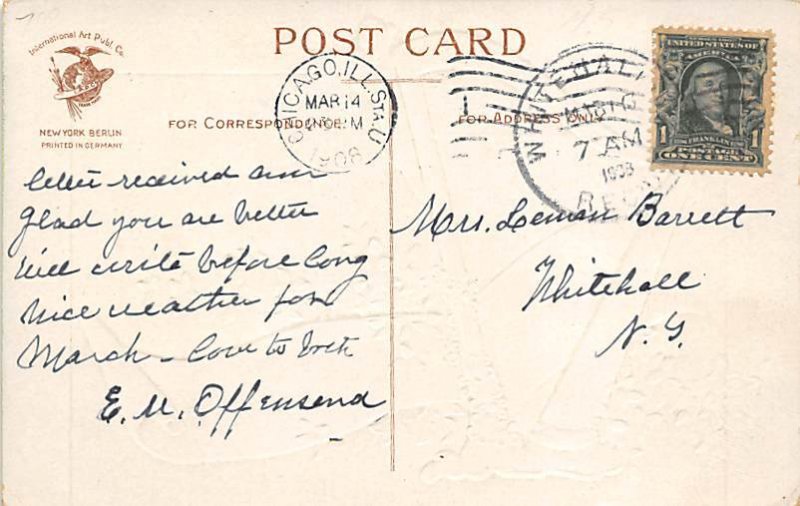 International Art Publ. Co.
NEW YORK BERLIN
PRINTED IN GERMANY
POST CARD
FOR CORRESPONDENCE
FOR ADDRESS ONLY
CHICAGO, ILL. STA. U
MAR 14
1908
WHITEHALL
7 AM
1908
REC'D
UNITED STATES OF AMERICA
FRANKLIN
1 1
ONE CENT
letter received am
Glad you are better
Will write before long
Nice weather for
March - love to both
E. M. Offensend
Mrs. Leman Barrett
Whitehall
N. Y.